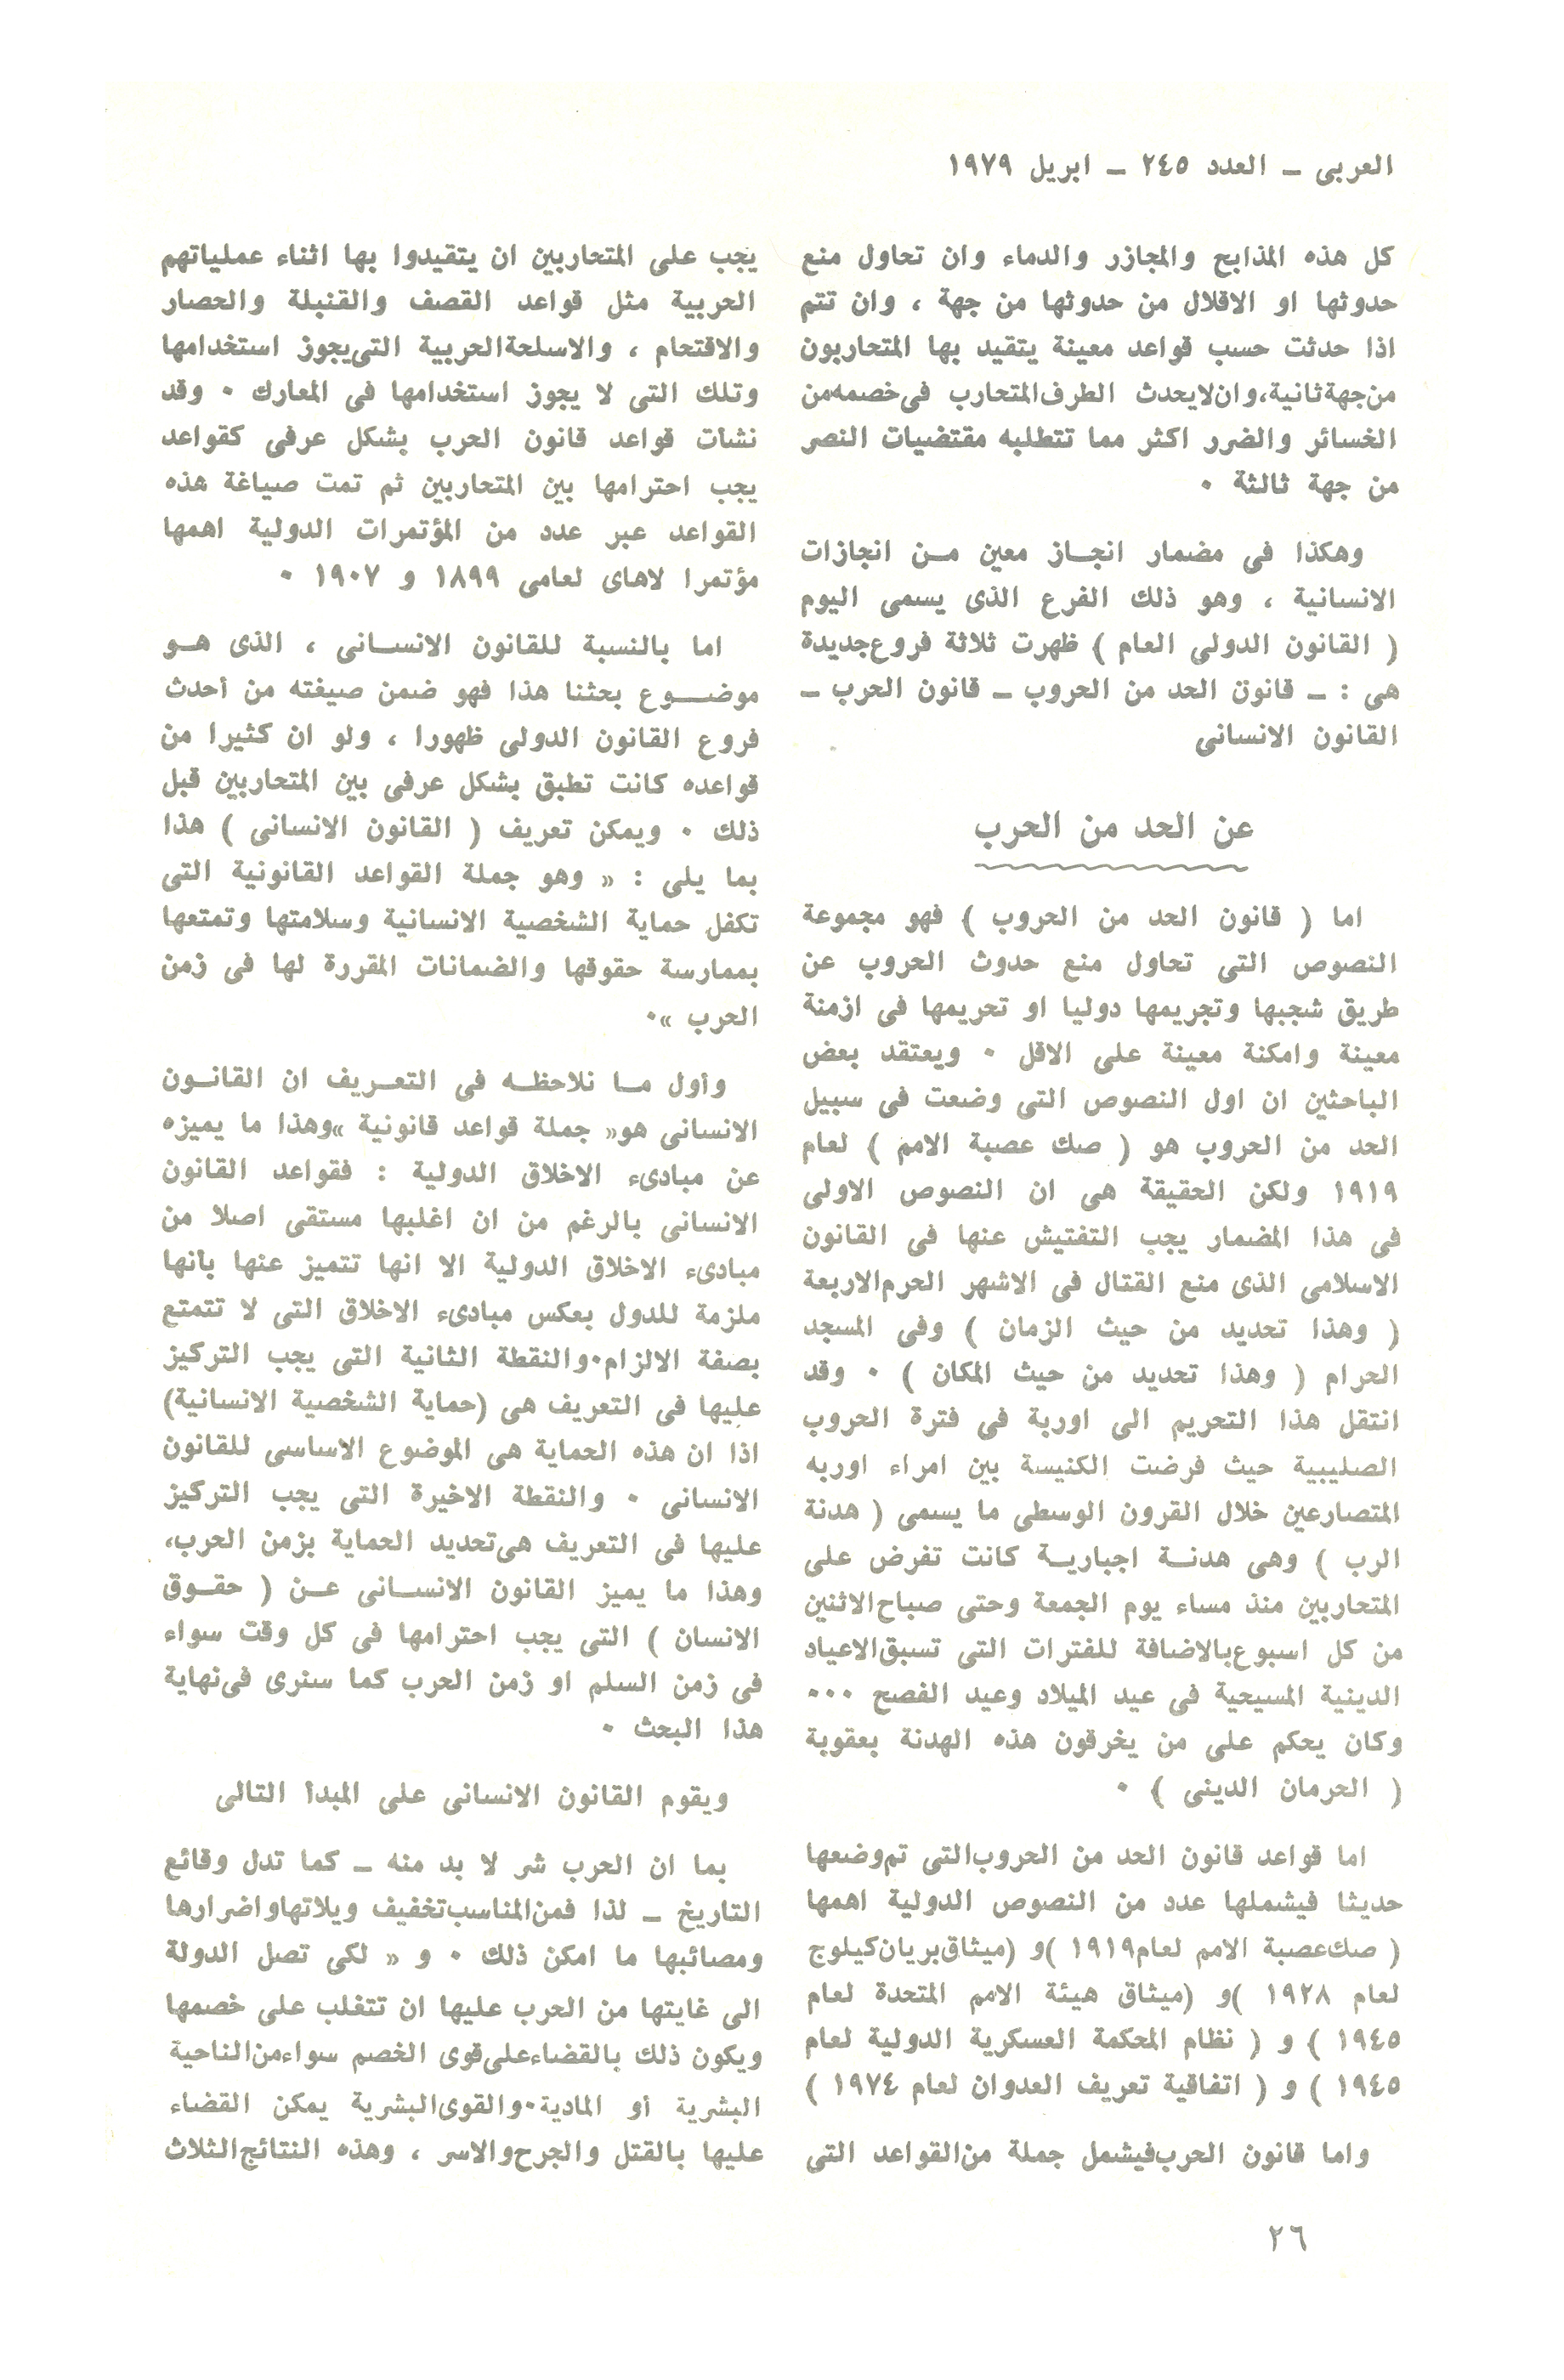 العربى ــ العدد ٢٤٥ ــ ابريل ١٩٧٩
كل هذه المذابح والمجازر والدماء وان تحاول منع
حدوثها او الاقلال من حدوثها من جهة ، وان تتم
اذا حدثت حسب قواعد معينة يتقيد بها المتحاربون
من جهة ثانية، وان لا يحدث الطرف المتحارب فى خصمه من
الخسائر والضرر اكثر مما تتطلبه مقتضيات النصر
من جهة ثالثة ٠
وهكذا فى مضمار انجـاز معين مـن انجازات
الانسانية ، وهو ذلك الفرع الذى يسمى اليوم
( القانون الدولى العام ) ظهرت ثلاثة فروع جديدة
هى : ــ قانون الحد من الحروب ــ قانون الحرب ــ
القانون الانسانى
عن الحد من الحرب
اما ( قانون الحد من الحروب ) فهو مجموعة
النصوص التى تحاول منع حدوث الحروب عن
طريق شجبها وتجريمها دوليا او تحريمها فى ازمنة
معينة وامكنة معينة على الاقل ٠ ويعتقد بعض
الباحثين ان اول النصوص التى وضعت فى سبيل
الحد من الحروب هو ( صك عصبة الامم ) لعام
١٩١٩ ولكن الحقيقة هى ان النصوص الاولى
فى هذا المضمار يجب التفتيش عنها فى القانون
الاسلامى الذى منع القتال فى الاشهر الحرم الاربعة
( وهذا تحديد من حيث الزمان ) وفى المسجد
الحرام ( وهذا تحديد من حيث المكان ) ٠ وقد
انتقل هذا التحريم الى اوربة فى فترة الحروب
الصليبية حيث فرضت الكنيسة بين امراء اوربه
المتصارعين خلال القرون الوسطى ما يسمى ( هدنة
الرب ) وهى هدنـة اجباريـة كانت تفرض على
المتحاربين منذ مساء يوم الجمعة وحتى صباح الاثنين
من كل اسبوع بالاضافة للفترات التى تسبق الاعياد
الدينية المسيحية فى عيد الميلاد وعيد الفصح ٠٠٠
وكان يحكم على من يخرقون هذه الهدنة بعقوبة
( الحرمان الدينى ) ٠
اما قواعد قانون الحد من الحروب التى تم وضعها
حديثا فيشملها عدد من النصوص الدولية اهمها
( صك عصبة الامم لعام ١٩١٩ )و (ميثاق بريان كيلوج
لعام ١٩٢٨ )و (ميثاق هيئة الامم المتحدة لعام
١٩٤٥ ) و ( نظام المحكمة العسكرية الدولية لعام
١٩٤٥ ) و ( اتفاقية تعريف العدوان لعام ١٩٧٤ )
واما قانون الحرب فيشمل جملة من القواعد التى
يجب على المتحاربين ان يتقيدوا بها اثناء عملياتهم
الحربية مثل قواعد القصف والقنبلة والحصار
والاقتحام ، والاسلحة الحربية التى يجوز استخدامها
وتلك التى لا يجوز استخدامها فى المعارك ٠ وقد
نشأت قواعد قانون الحرب بشكل عرفى كقواعد
يجب احترامها بين المتحاربين ثم تمت صياغة هذه
القواعد عبر عدد من المؤتمرات الدولية اهمها
مؤتمرا لاهاى لعامى ١٨٩٩ و ١٩٠٧ ٠
اما بالنسبة للقانون الانسـانى ، الذى هـو
موضـــوع بحثنا هذا فهو ضمن صيغته من أحدث
فروع القانون الدولى ظهورا ، ولو ان كثيرا من
قواعده كانت تطبق بشكل عرفى بين المتحاربين قبل
ذلك ٠ ويمكن تعريف ( القانون الانسانى ) هذا
بما يلى : « وهو جملة القواعد القانونية التى
تكفل حماية الشخصية الانسانية وسلامتها وتمتعها
بممارسة حقوقها والضمانات المقررة لها فى زمن
الحرب »٠
وأول مـا نلاحظـه فى التعـريف ان القانـون
الانسانى هو« جملة قواعد قانونية »وهذا ما يميزه
عن مبادىء الاخلاق الدولية : فقواعد القانون
الانسانى بالرغم من ان اغلبها مستقى اصلا من
مبادىء الاخلاق الدولية الا انها تتميز عنها بأنها
ملزمة للدول بعكس مبادىء الاخلاق التى لا تتمتع
بصفة الالزام٠والنقطة الثانية التى يجب التركيز
عليها فى التعريف هى (حماية الشخصية الانسانية)
اذا ان هذه الحماية هى الموضوع الاساسى للقانون
الانسانى ٠ والنقطة الاخيرة التى يجب التركيز
عليها فى التعريف هى تحديد الحماية بزمن الحرب،
وهذا ما يميز القانون الانسـانى عـن ( حقـوق
الانسان ) التى يجب احترامها فى كل وقت سواء
فى زمن السلم او زمن الحرب كما سنرى فى نهاية
هذا البحث ٠
ويقوم القانون الانسانى على المبدأ التالى
بما ان الحرب شر لا بد منه ــ كما تدل وقائع
التاريخ ــ لذا فمن المناسب تخفيف ويلاتها واضرارها
ومصائبها ما امكن ذلك ٠ و « لكى تصل الدولة
الى غايتها من الحرب عليها ان تتغلب على خصمها
ويكون ذلك بالقضاء على قوى الخصم سواء من الناحية
البشرية أو المادية٠والقوى البشرية يمكن القضاء
عليها بالقتل والجرح والاسر ، وهذه النتائج الثلاث
٢٦